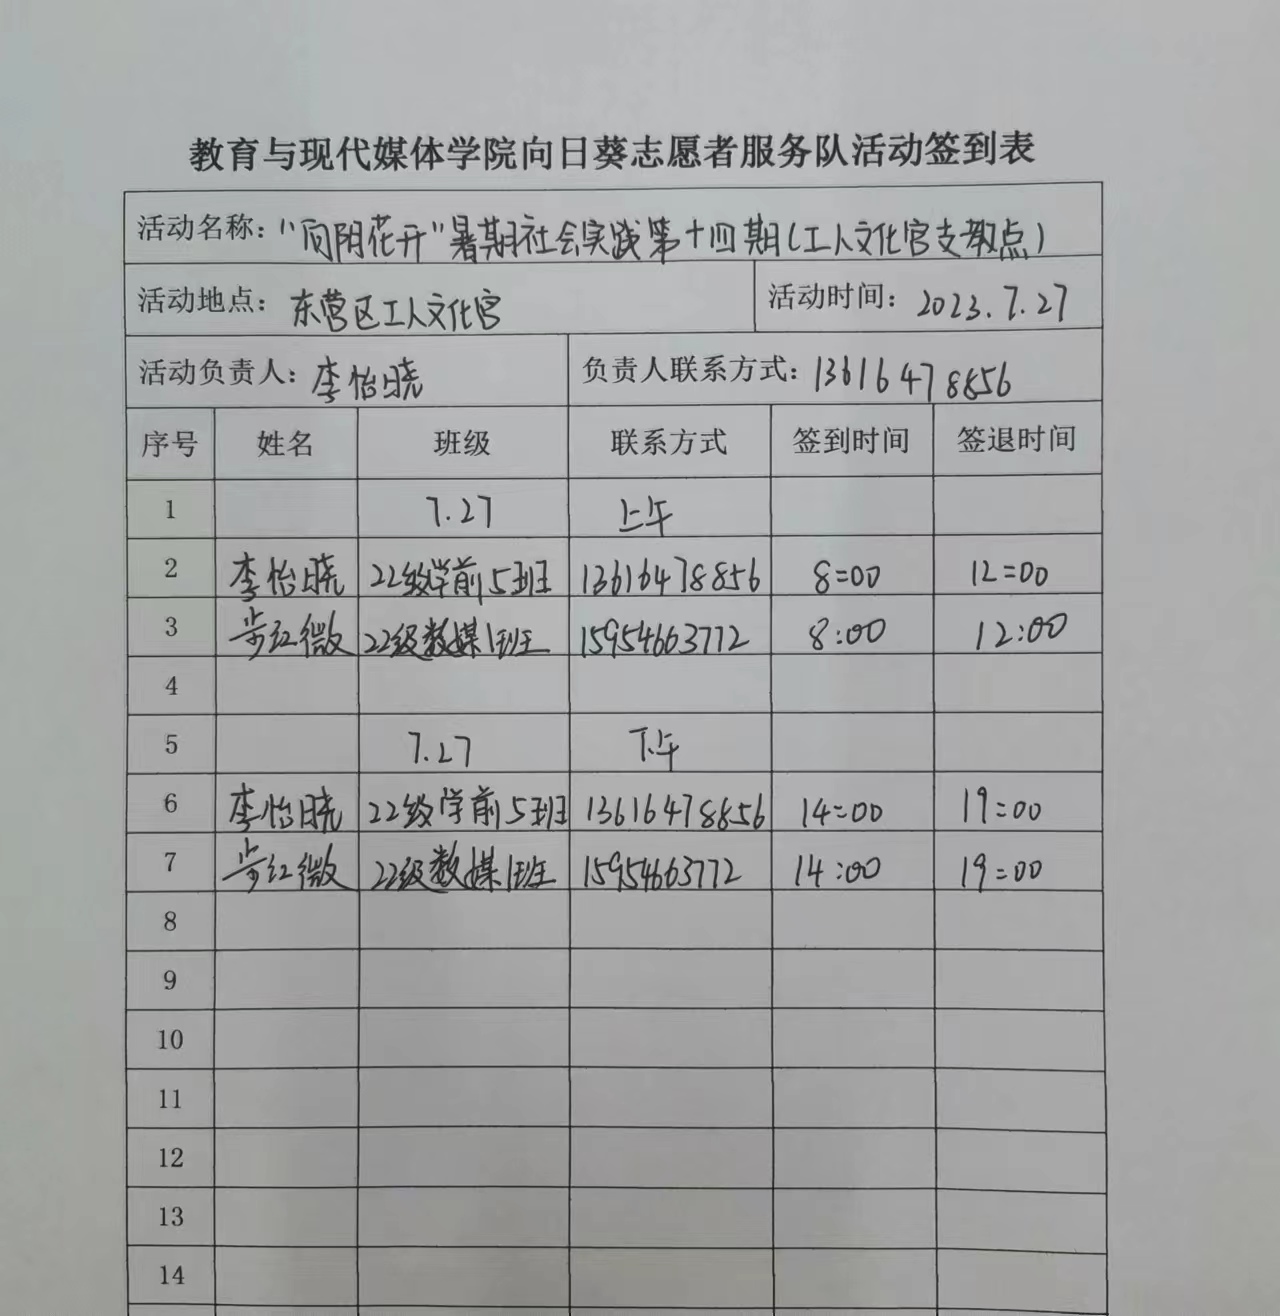 教育与现代媒体学院向日葵志愿者服务队活动签到表
活动名称："向阳花开"暑期社会实践第十四期(工人文化宫支教点)
活动地点：东营区工人文化宫 活动时间：2023.7.27
活动负责人：李怡晓 负责人联系方式：13616478856
序号 姓名 班级 联系方式 签到时间 签退时间
1 7.27 上午
2 李怡晓 22级学前5班 13616478856 8:00 12:00
3 步红微 22级数媒1班 15954663772 8:00 12:00
4
5 7.27 下午
6 李怡晓 22级学前5班 13616478856 14:00 19:00
7 步红微 22级数媒1班 15954663772 14:00 19:00
8
9
10
11
12
13
14